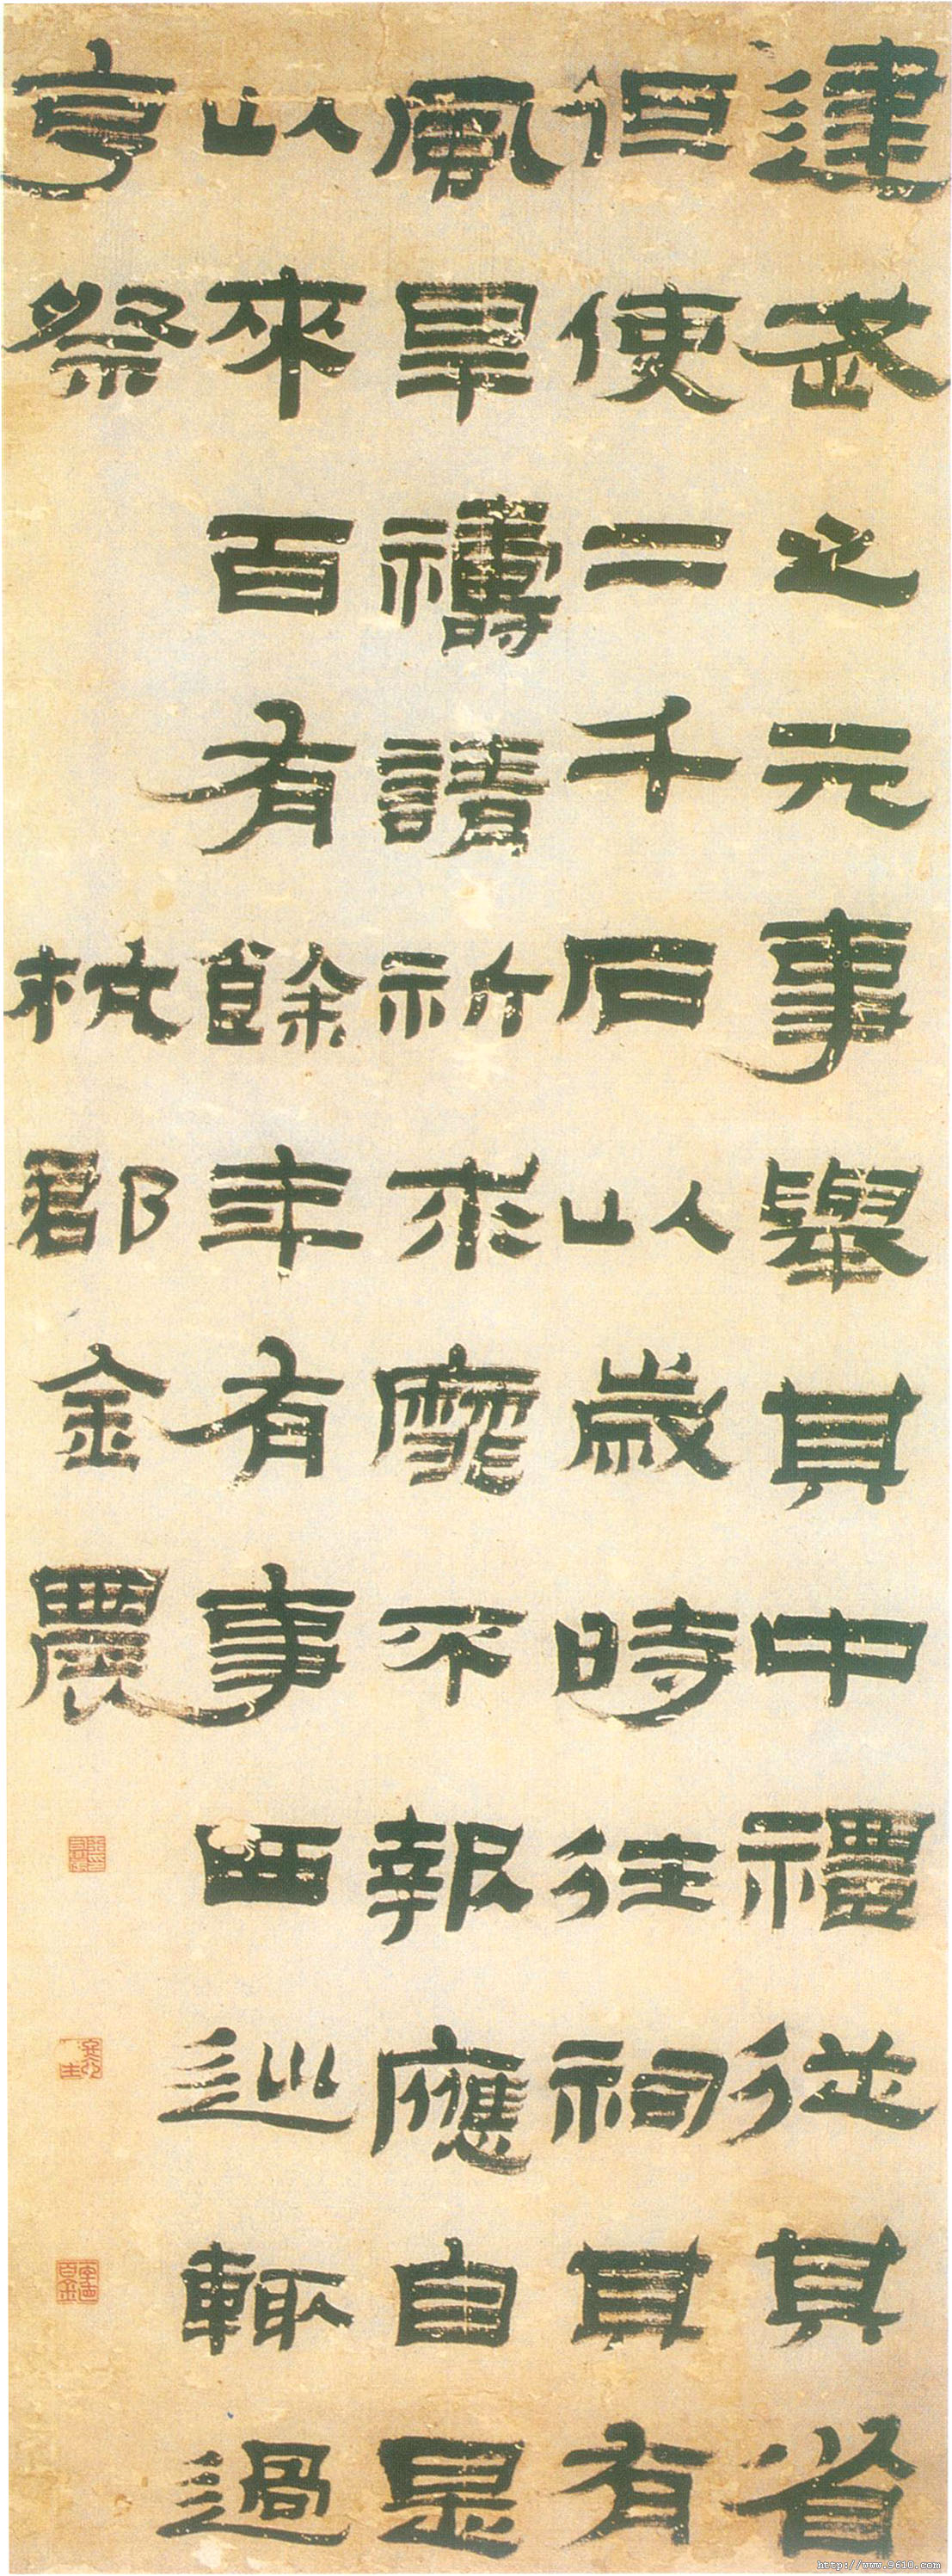 建武之元事舉其中禮從其省
但使二千石以歲時往祠其有
風旱禱請祈求靡不報應自是
以來百有餘年有事西巡輒過
亨祭
杭郡金農
http://www.9610.com